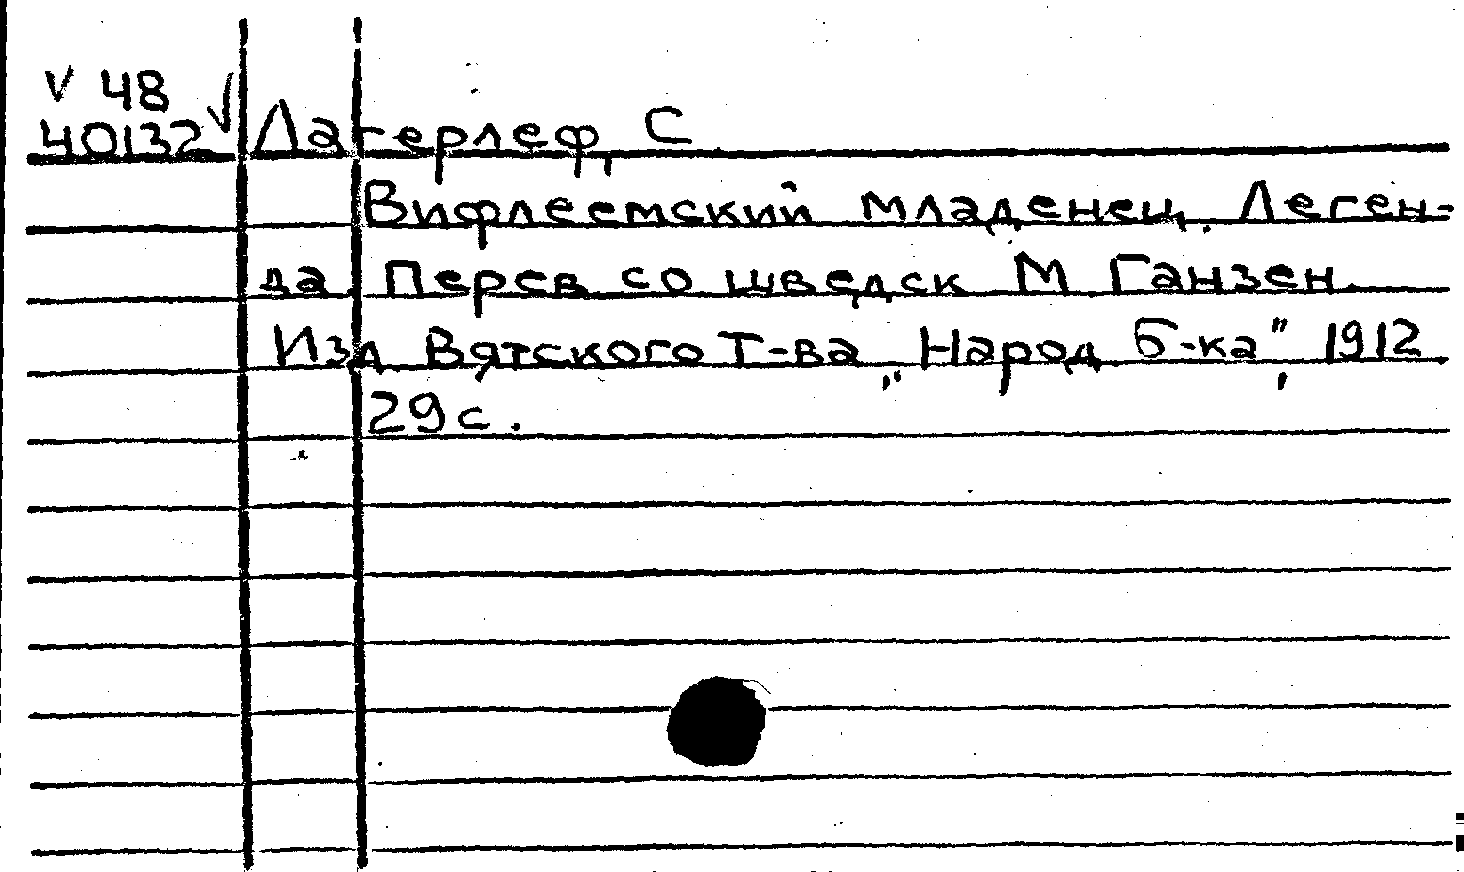 V 48
40132
Лагерлеф, С
Вифлеемский младенец. Леген-
да. Перев со шведск М Ганзен.
Изд Вятского Т-ва „Народ Б-ка", 1912
29 с.